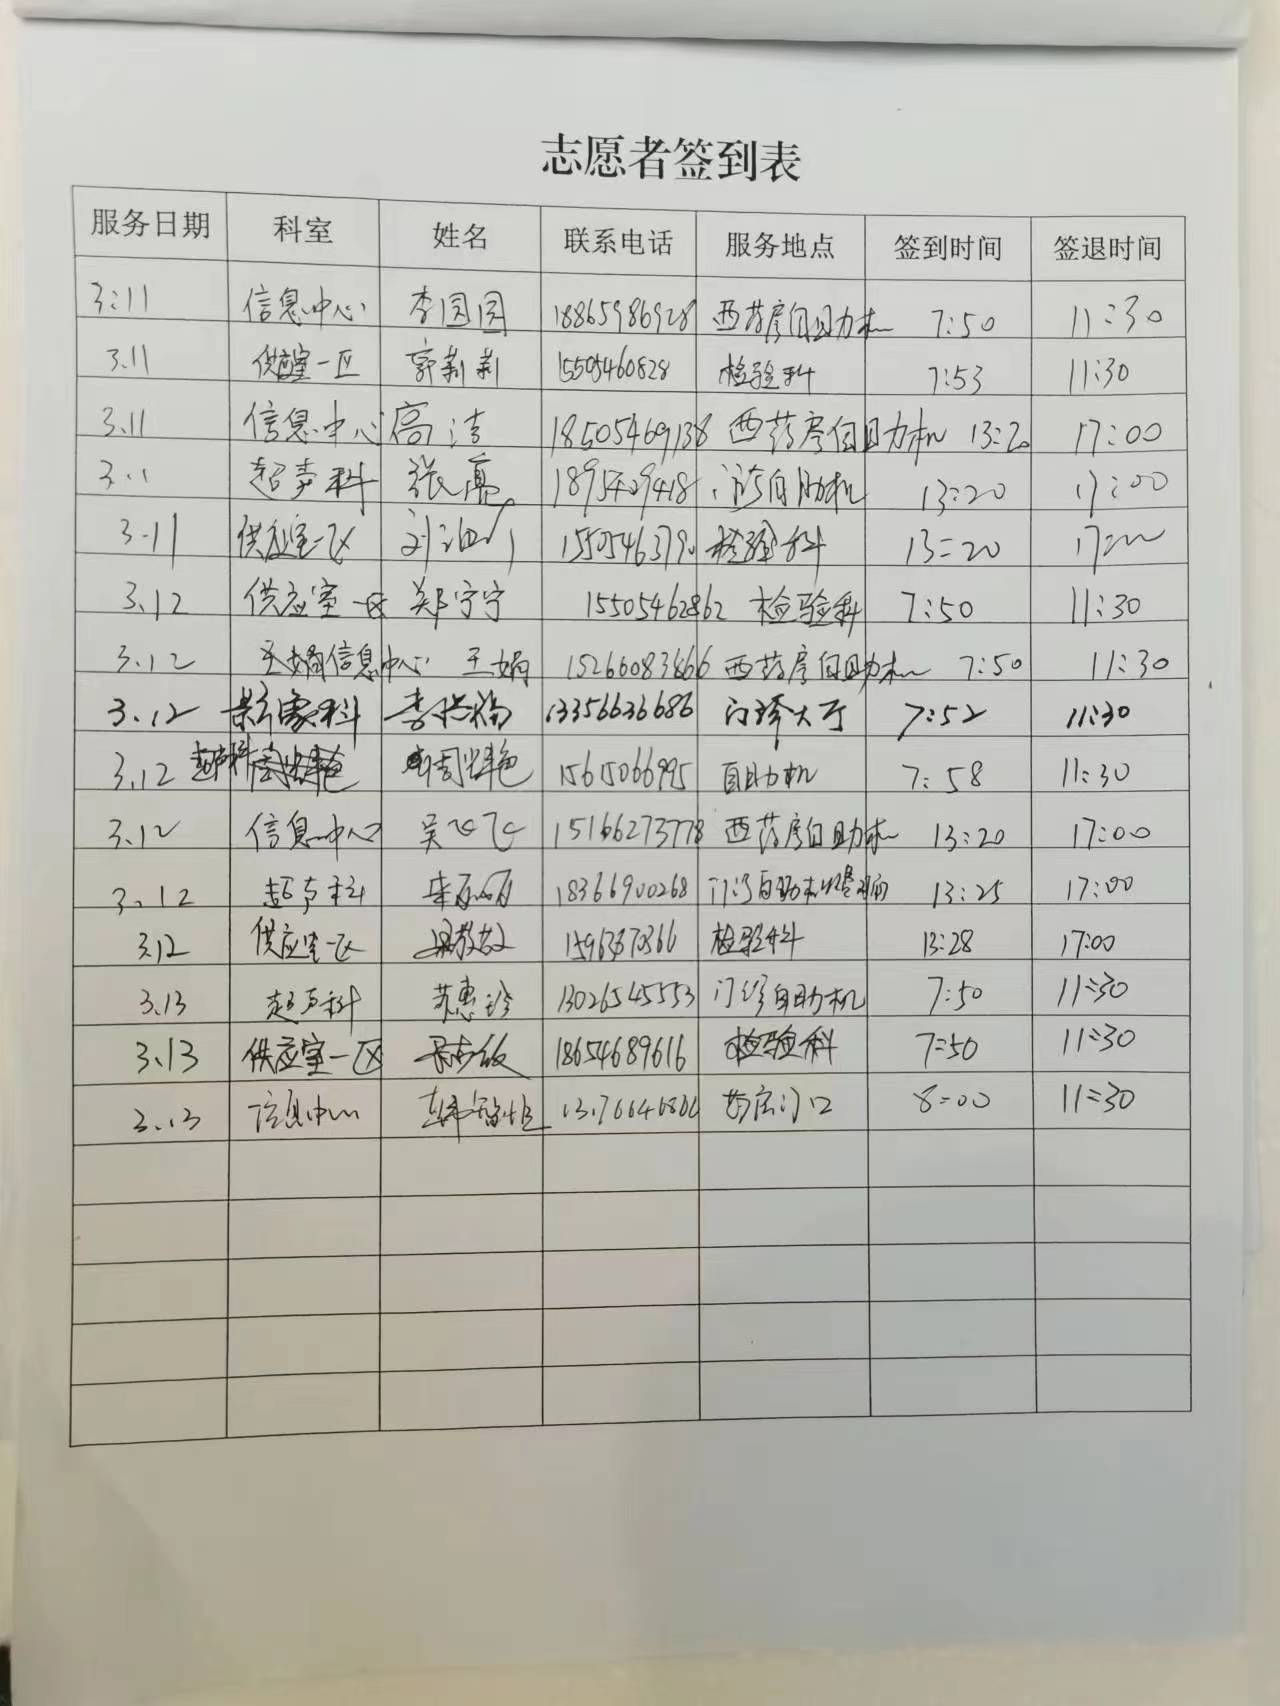 志愿者签到表
服务日期 科室 姓名 联系电话 服务地点 签到时间 签退时间
3:11 信息中心 李圆圆 18865986928 西药房自助机 7:50 11:30
3.11 供应室一区 郭莉莉 15505460828 检验科 7:53 11:30
3.11 信息中心 高洁 18505469138 西药房自助机 13:20 17:00
3.11 超声科 张亮 1895429418 门诊自助机 13:20 17:00
3.11 供应室一区 1550546379 检验科 13:20 17:00
3.12 供应室一区 郑宁宁 15505462862 检验科 7:50 11:30
3.12 王娟信息中心 王娟 15266083866 西药房自助机 7:50 11:30
3.12 影像科 13356636686 门诊大厅 7:52 11:30
3.12 超声科 15615066995 自助机 7:58 11:30
3.12 信息中心 吴飞飞 15166273778 西药房自助机 13:20 17:00
3.12 超声科 18366900268 门诊自助机 13:25 17:00
3.12 供应室一区 检验科 13:28 17:00
3.13 超声科 苏惠珍 13026545553 门诊自助机 7:50 11:30
3.13 供应室一区 18654689616 检验科 7:50 11:30
3.13 信息中心 药房门口 8:00 11:30